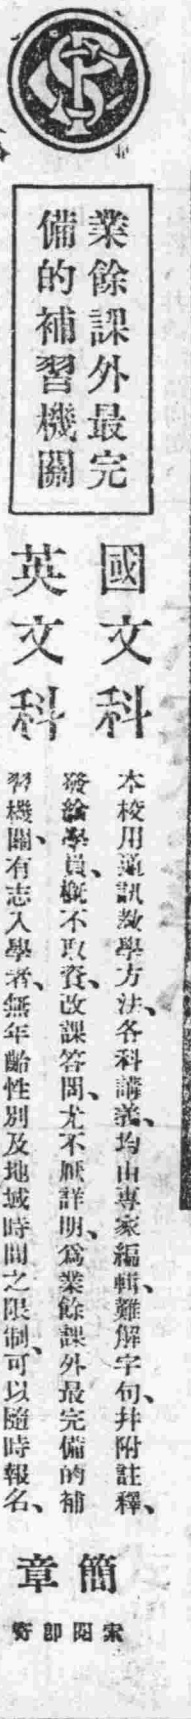 業餘課外最完
備的補習機關
國文科
英文科
本校用通訊教學方法、各科講義、均由專家編輯、難解字句、幷附註釋、
發給學員、概不取資、改課答問、尤不厭詳明、爲業餘課外最完備的補
習機關、有志入學者、無年齡性別及地域時間之限制、可以隨時報名、
簡章
索閱卽寄